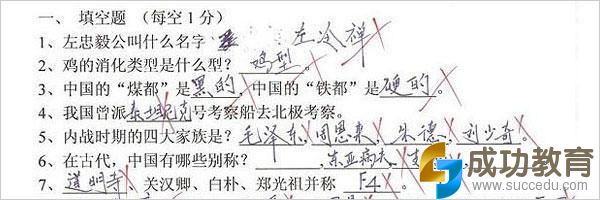 一、 填空题 （每空1分）
1、左忠毅公叫什么名字 左冷禅
2、鸡的消化类型是什么型？ 鸡型
3、中国的“煤都”是黑的，中国的“铁都”是硬的。
4、我国曾派泰坦尼克号考察船去北极考察。
5、内战时期的四大家族是？毛泽东，周恩来，朱德，刘少奇
6、在古代，中国有哪些别称？ ，东亚病夫，
7、道明寺、关汉卿、白朴、郑光祖并称 F4 。
成功教育
www.succedu.com